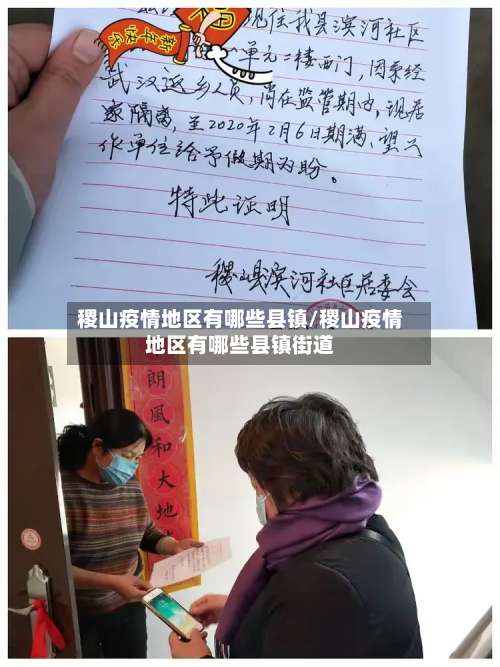 现住我县滨河社区
单元二楼西门，因系经
武汉返乡人员，尚在监管期内，现居
家隔离，至2020年2月6日期满、望工
作单位给予假期为盼。
特此证明
稷山县滨河社区居委会
新年快乐
稷山疫情地区有哪些县镇/稷山疫情
地区有哪些县镇街道
朗風和大地